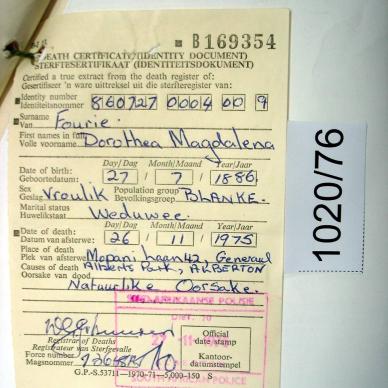 B169354
DEATH CERTIFICATE (IDENTITY DOCUMENT)
STERFTESERTIFIKAAT (IDENTITEITSDOKUMENT)
Certified a true extract from the death register of:
Gesertifiseer 'n ware uittreksel uit die sterfteregister van:
Identity number
Identiteitsnommer 860727 0004 00 9
Surname
Van Fourie.
First names in full
Volle voorname Dorothea Magdalena
Day/Dag Month/Maand Year/Jaar
Date of birth:
Geboortedatum: 27 7 1886
Sex Population group
Geslag Vroulik Bevolkingsgroep BLANKE.
Marital status
Huwelikstaat Weduwee.
Day/Dag Month/Maand Year/Jaar
Date of death:
Datum van afsterwe: 26 11 1975
Place of death
Plek van afsterwe Mopani laan 42, Generaal
Causes of death Alberts Park, ALBERTON
Oorsake van dood
Natuurlike Oorsake.
SUID-AFRIKAANSE POLISIE
Registrar of Deaths
Registrateur van Sterfgevalle
Force number
Magsnommer
Official
date stamp
Kantoor-
datumstempel
SOUTH AFRICAN POLICE
G.P.-S.53711-1970-71-5,000-150 S
1020/76